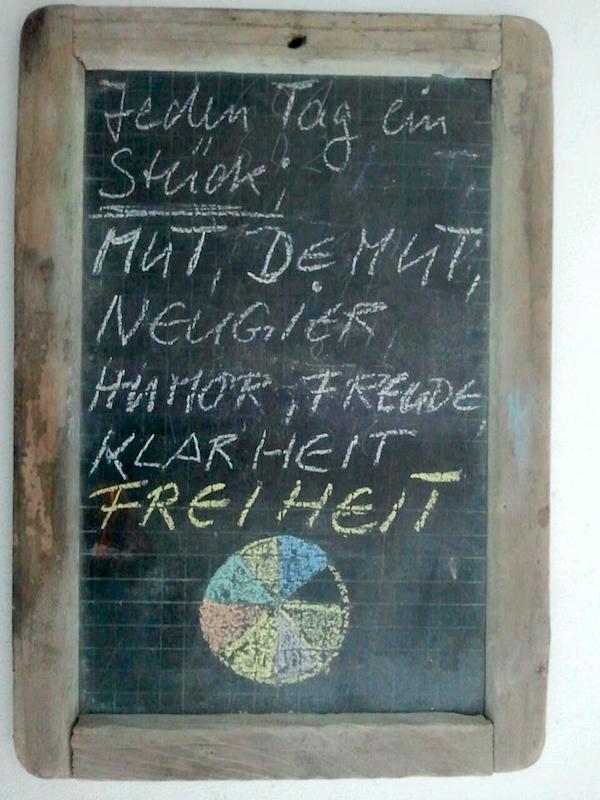 Jeden Tag ein
Stück;
MUT, DEMUT,
NEUGIER,
HUMOR, FREUDE,
KLARHEIT
FREIHEIT